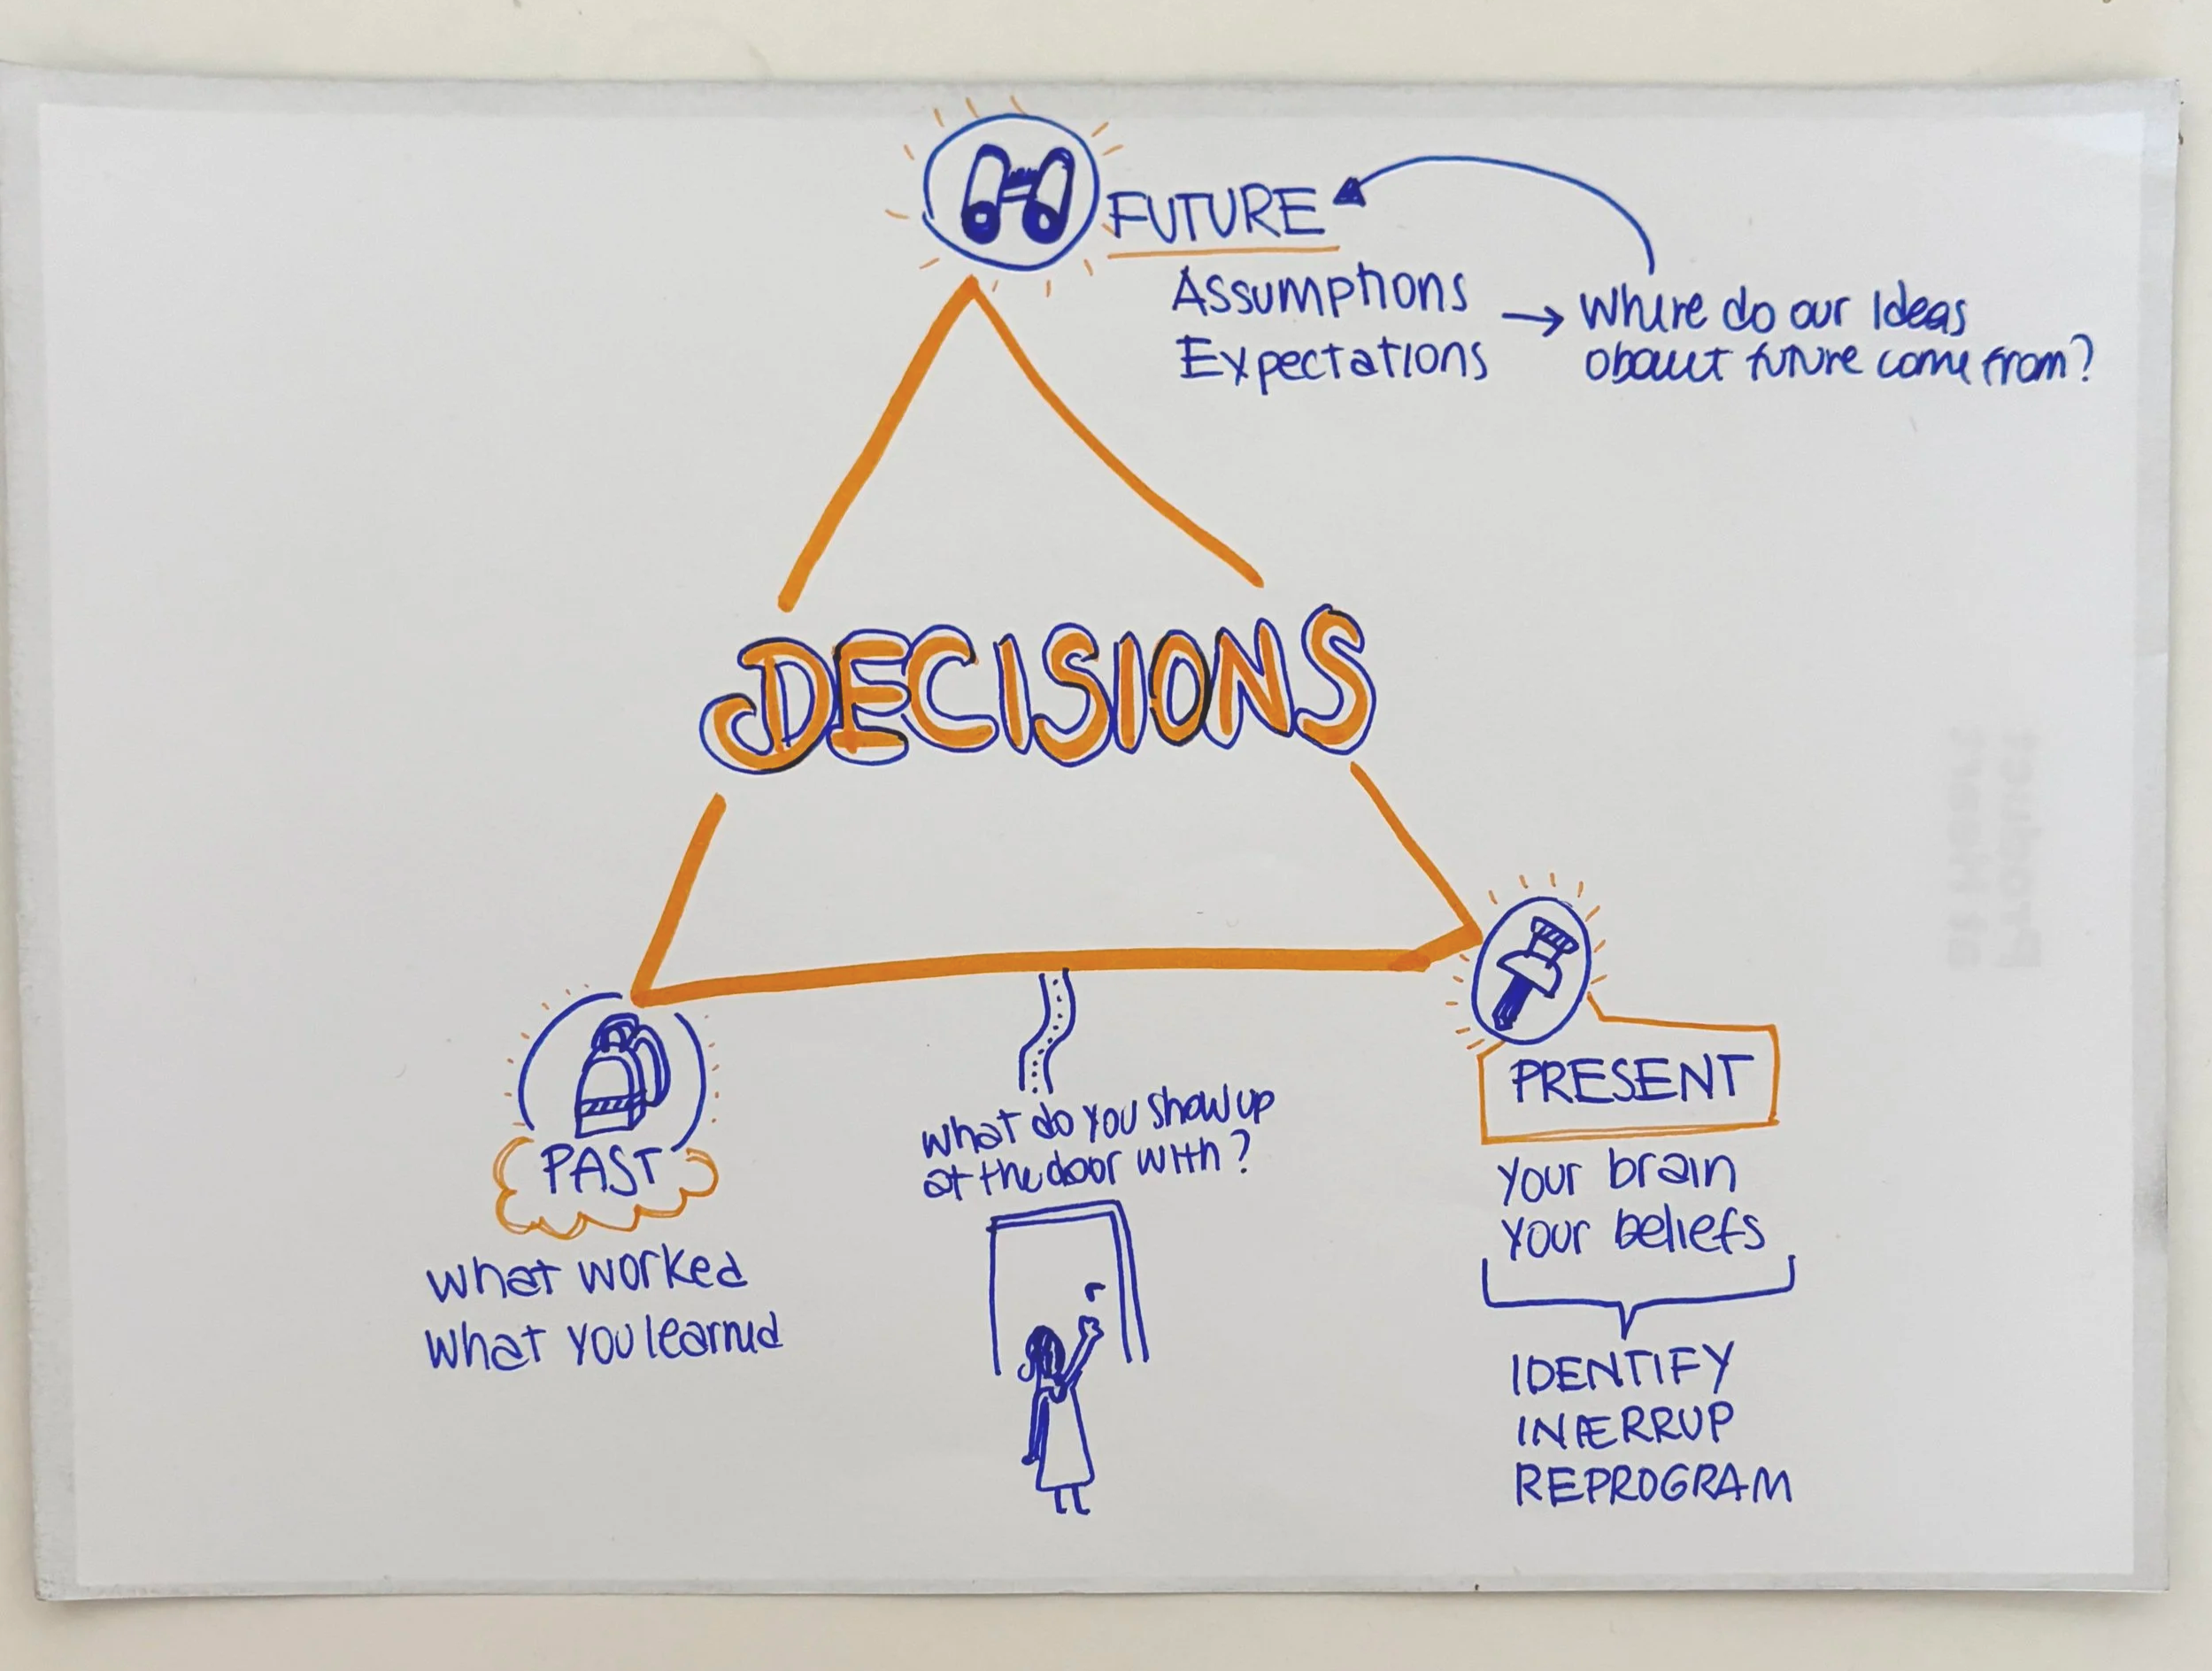 FUTURE
Assumptions
Expectations
Where do our Ideas
obouut future come from?
DECISIONS
PAST
What worked
What you learned
What do you show up
at the door with?
PRESENT
Your brain
Your beliefs
IDENTIFY
INTERRUP
REPROGRAM
Product
at Heart